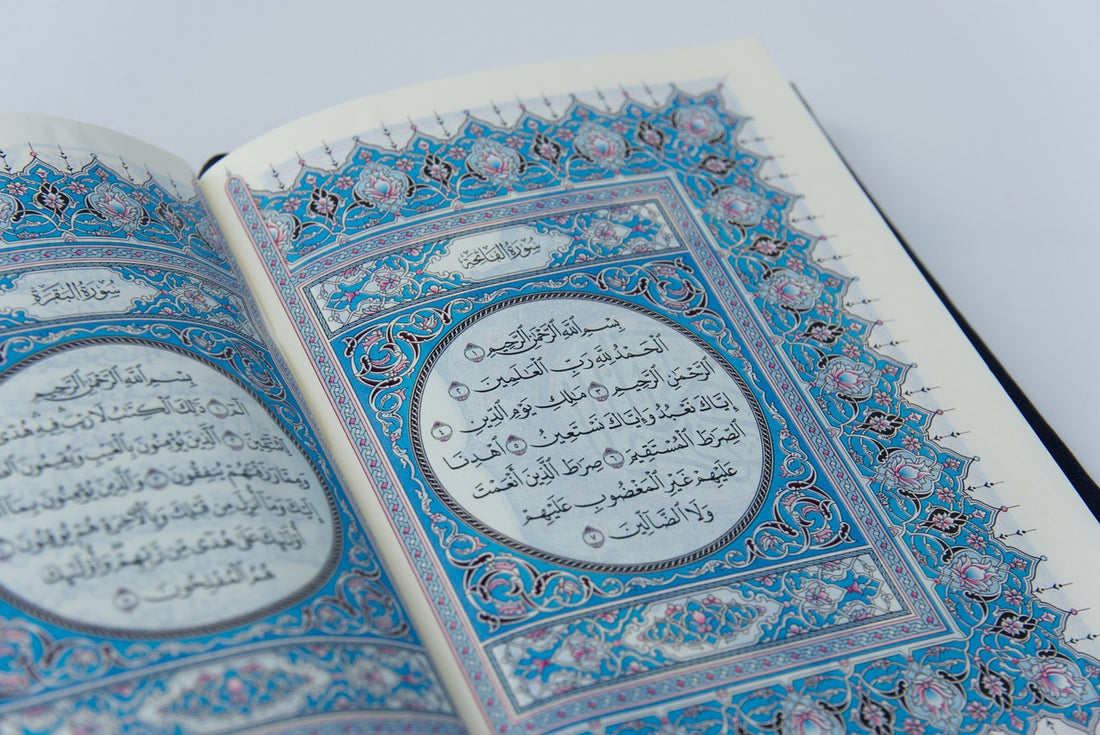 سُورَةُ الفَاتِحَةِ
بِسْمِ ٱللَّهِ ٱلرَّحْمَٰنِ ٱلرَّحِيمِ ١
ٱلْحَمْدُ لِلَّهِ رَبِّ ٱلْعَٰلَمِينَ ٢
ٱلرَّحْمَٰنِ ٱلرَّحِيمِ ٣ مَٰلِكِ يَوْمِ ٱلدِّينِ ٤
إِيَّاكَ نَعْبُدُ وَإِيَّاكَ نَسْتَعِينُ ٥ ٱهْدِنَا
ٱلصِّرَٰطَ ٱلْمُسْتَقِيمَ ٦ صِرَٰطَ ٱلَّذِينَ أَنْعَمْتَ
عَلَيْهِمْ غَيْرِ ٱلْمَغْضُوبِ عَلَيْهِمْ
وَلَا ٱلضَّآلِّينَ ٧
سُورَةُ البَقَرَةِ
بِسْمِ ٱللَّهِ ٱلرَّحْمَٰنِ ٱلرَّحِيمِ
الٓمٓ ١ ذَٰلِكَ ٱلْكِتَٰبُ لَا رَيْبَ فِيهِ هُدًى
لِّلْمُتَّقِينَ ٢ ٱلَّذِينَ يُؤْمِنُونَ بِٱلْغَيْبِ وَيُقِيمُونَ
وَمِمَّا رَزَقْنَٰهُمْ يُنفِقُونَ ٣ وَٱلَّذِينَ يُؤْمِنُونَ بِمَآ
إِلَيْكَ وَمَآ أُنزِلَ مِن قَبْلِكَ وَبِٱلْءَاخِرَةِ هُمْ يُوقِنُونَ ٤
أُو۟لَٰٓئِكَ عَلَىٰ هُدًى مِّن رَّبِّهِمْ وَأُو۟لَٰٓئِكَ
هُمُ ٱلْمُفْلِحُونَ ٥